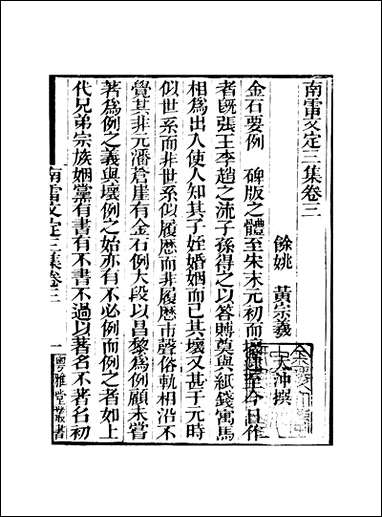 南雷文定三集卷三
餘姚 黃宗羲 太沖撰
金石要例 碑版之體至宋末元初而壞逮至今日作
者既張王李趙之流子孫得之以答賻奠與紙錢寓馬
相爲出入使人知其子姪婚姻而已其壞又甚于元時
似世系而非世系似履歷而非履歷市聲俗軌相沿不
覺其非元潘蒼崖有金石例大段以昌黎爲例顧未嘗
著爲例之義與壞例之始亦有不必例而例之者如上
代兄弟宗族姻黨有書有不書不過以著名不著名初
南雷文定三集卷三
一
粵雅堂叢書